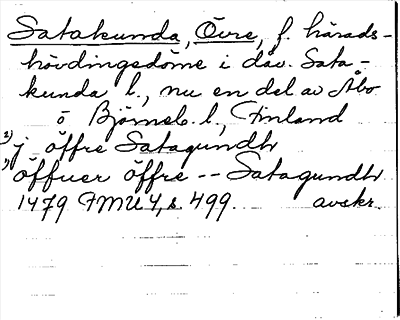 Satakunda, Övre, f. härads-
hövdingedöme i dåv. Sata-
kunda l., nu en del av Åbo
o Björneb. l., Finland
2) j öffre Satagundh
1) öffuer öffre -- Satagundh
1479 FMU 4, s. 499. avskr.